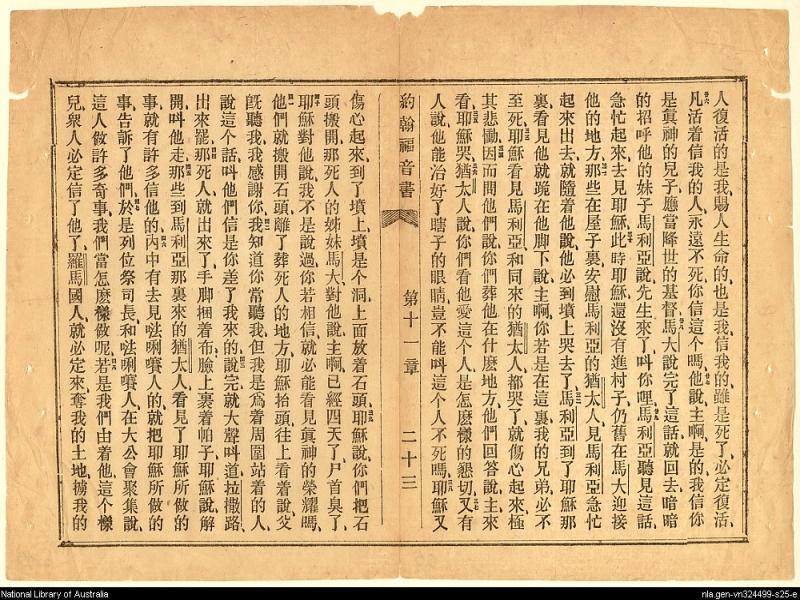 人復活的是我賜人生命的也是我信我的雖是死了必定復活
凡活着信我的人永遠不死你信這個嗎他說主啊是的我信你
是眞神的兒子應當降世的基督馬大說完了這話就回去暗暗
的招呼他的妹子馬利亞說先生來了叫你哩馬利亞聽見這話
急忙起來去見耶穌此時耶穌還沒有進村子仍舊在馬大迎接
他的地方那些在屋子裏安慰馬利亞的猶太人見馬利亞急忙
起來出去就隨着他說他必到墳上哭去了馬利亞到了耶穌那
裏看見他就跪在他脚下說主啊你若是在這裏我的兄弟必不
至死耶穌看見馬利亞和同來的猶太人都哭了就傷心起來極
其悲慟因而問他們說你們葬他在什麽地方他們回答說主來
看耶穌哭猶太人說你們看他愛這個人是怎麽樣的懇切又有
人說他能治好了瞎子的眼睛豈不能叫這個人不死嗎耶穌又
約翰福音書 第十一章 二十三
傷心起來到了墳上墳是個洞上面放着石頭耶穌說你們把石
頭搬開那死人的姊妹馬大對他說主啊已經四天了尸首臭了
耶穌對他說我不是說過你若相信就必能看見眞神的榮耀嗎
他們就搬開石頭離了葬死人的地方耶穌抬頭往上看着說父
旣聽我我感謝你我知道你常聽我但我是爲着周圍站着的人
說這個話叫他們信是你差了我來的說完就大聲呌道拉撒路
出來罷那死人就出來了手脚捆着布臉上裹着帕子耶穌說解
開叫他走那些到馬利亞那裏來的猶太人看見了耶穌所做的
事就有許多信他的內中有去見𠵽唎㘔人的就把耶穌所做的
事告訴了他們於是列位祭司長和𠵽唎㘔人在大公會聚集說
這人做許多奇事我們當怎麽樣做呢若是我們由着他這個樣
兒衆人必定信了他了羅馬國人就必定來奪我的土地擄我的
National Library of Australia
nla.gen-vn324499-s25-e